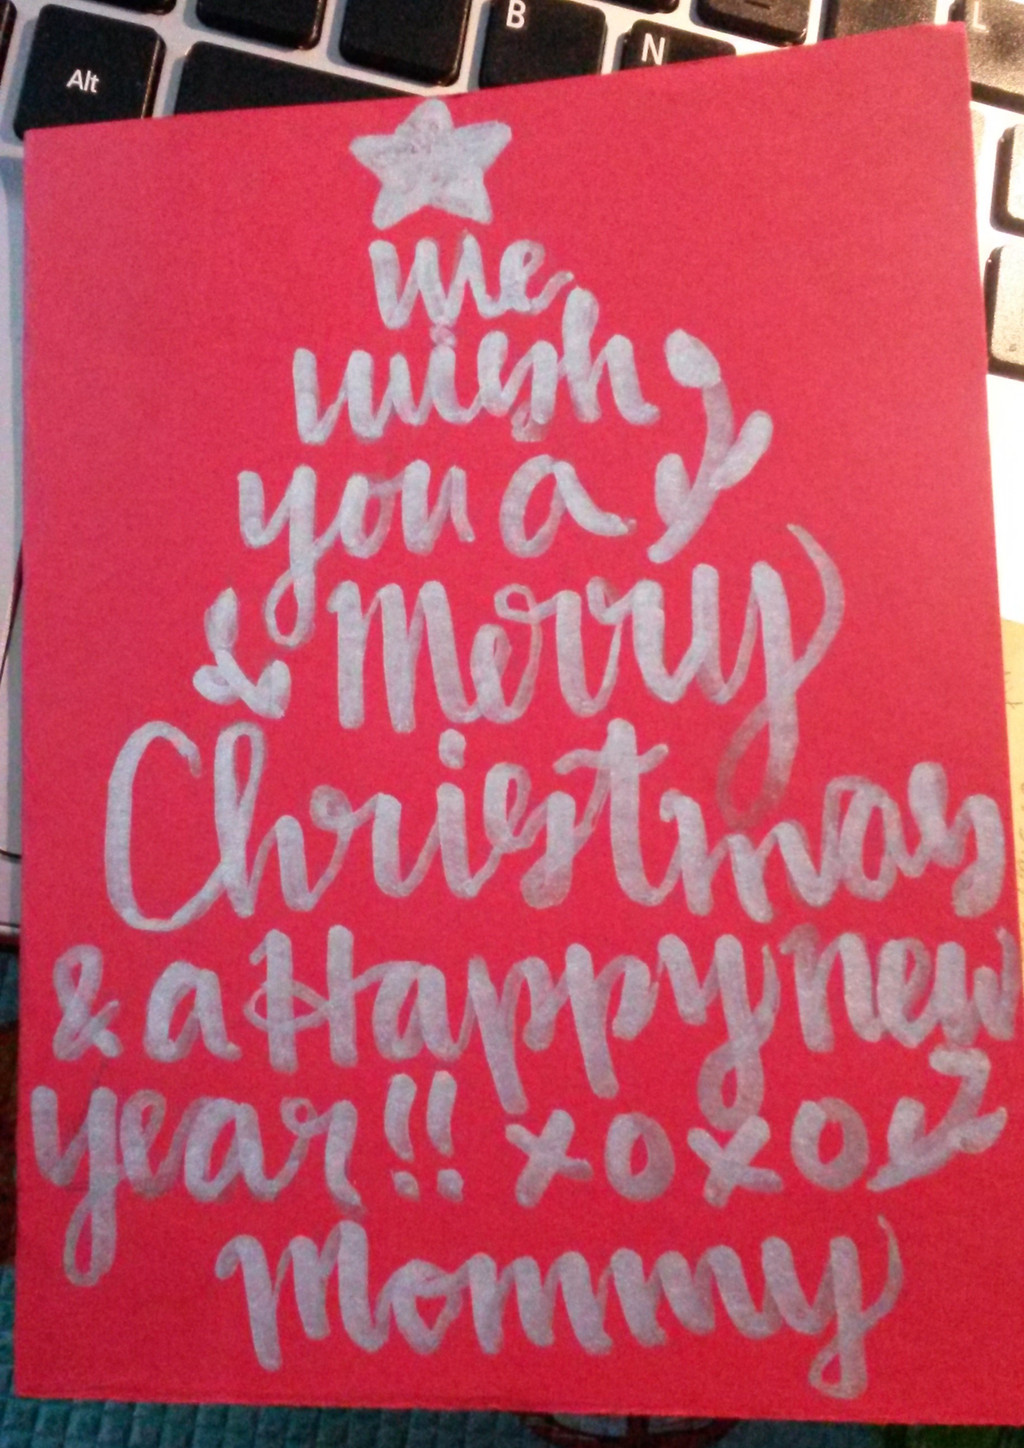 Alt
B
N
L
we
wish
you a
Merry
Christmas
& a Happy new
year!! xoxo
Mommy